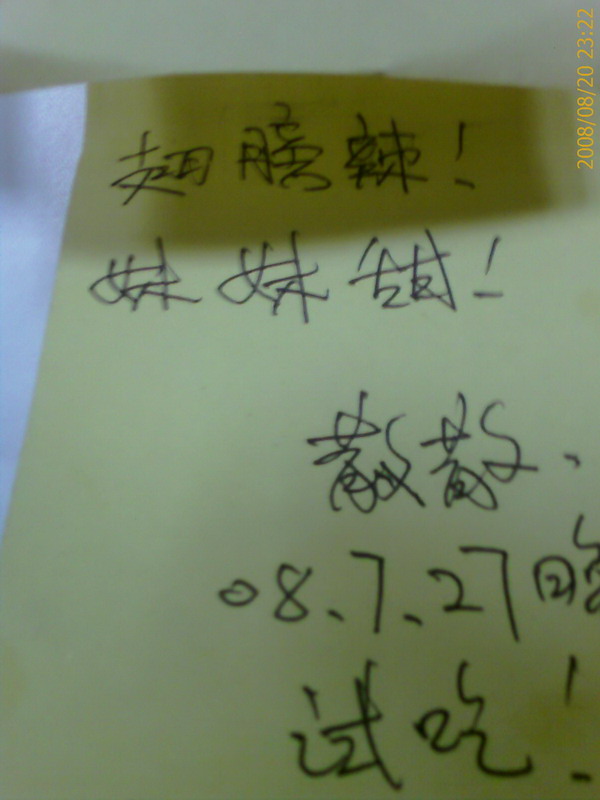 翅膀辣！
妹妹甜！
散散、
08.7.27晚
试吃！
2008/08/20 23:22